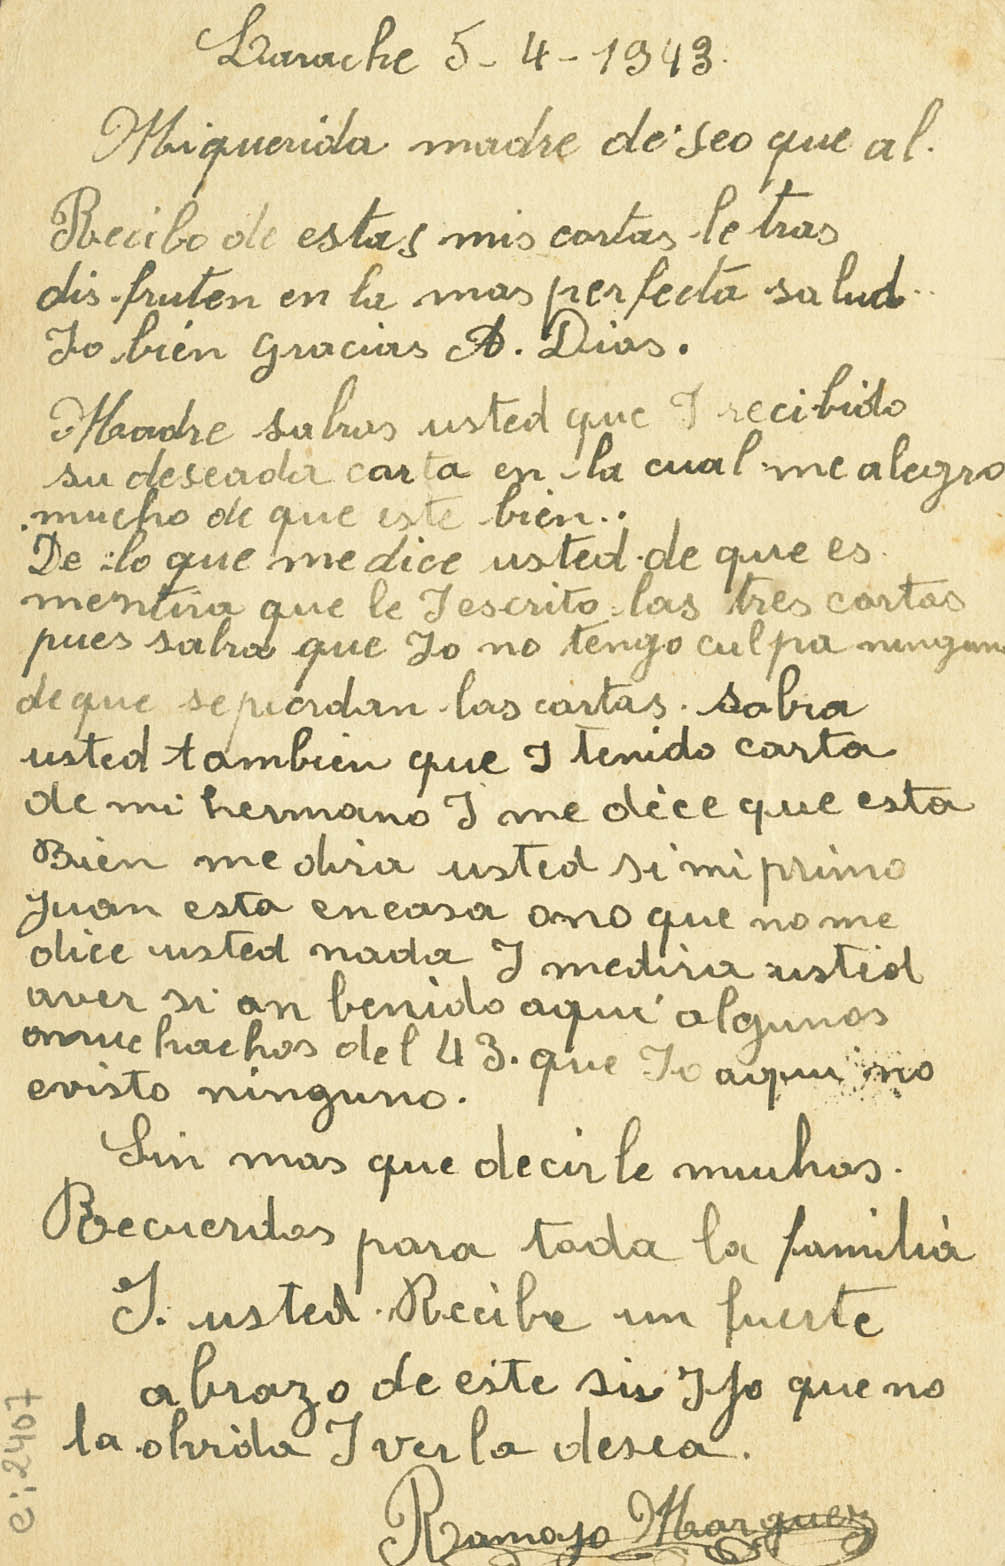 Larache 5-4-1943.
Mi querida madre deseo que al.
Recibo de estas mis cortas letras
disfruten en la mas perfecta salud..
Io bien gracias A. Dias.
Madre sabras usted que I recibido
su deseada carta en la cual me alegro
mucho de que este bien..
De lo que me dice usted de que es.
mentira que le I escrito las tres cartas
pues sabra que Io no tengo culpa ninguna
de que se pierdan las cartas. sabra
usted tambien que I tenido carta
de mi hermano I me dice que esta
Bien me dira usted si mi primo
Juan esta en casa o no que no me
dice usted nada I me dira usted
aver si an benido aqui algunos
muchachos del 43. que Io aqui no
e visto ninguno.
Sin mas que decirle muchos.
Recuerdos para toda la familia
I. usted. Recibe un fuerte
abrazo de este sis Ijo que no
la olvida I verla desea.
Ramojo Marquez
e: 2407